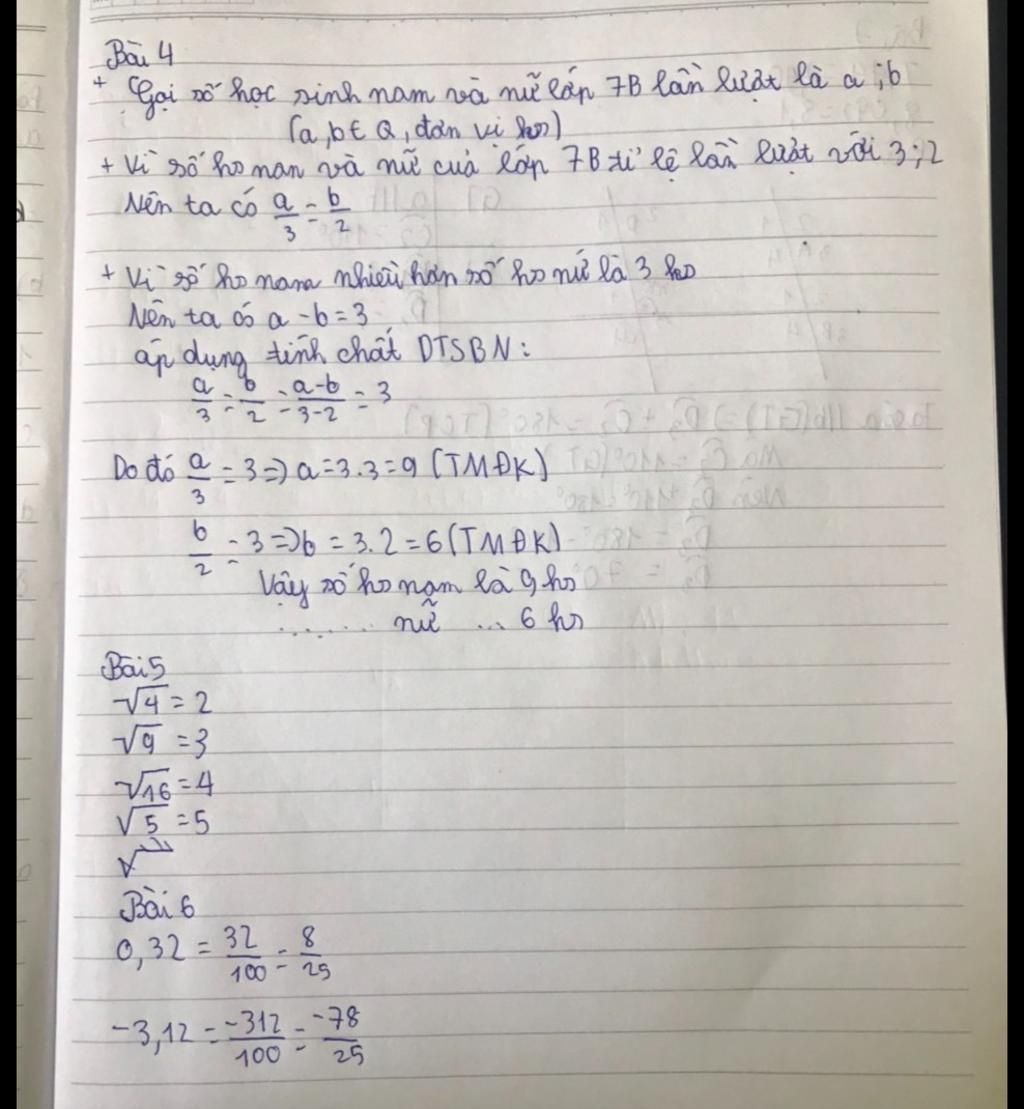 Bài 4
+ Gọi số học sinh nam và nữ lớp 7B lần lượt là a ; b
(a, b ∈ Q, đơn vị hs)
+ Vì số hs nan và nữ cuả lớp 7B tỉ lệ lần lượt với 3 ; 2
Nên ta có a/3 = b/2
+ Vì số hs nam nhiều hơn số hs nữ là 3 hs
Nên ta có a - b = 3
áp dụng tính chất DTSBN:
a/3 = b/2 = a-b/3-2 = 3
Do đó a/3 = 3 => a = 3.3 = 9 (TMĐK)
b/2 = 3 => b = 3.2 = 6 (TMĐK)
Vậy số hs nam là 9 hs
....... nữ ... 6 hs
Bài 5
√4 = 2
√9 = 3
√16 = 4
√5 = 5
Bài 6
0,32 = 32/100 = 8/25
-3,12 = -312/100 = -78/25